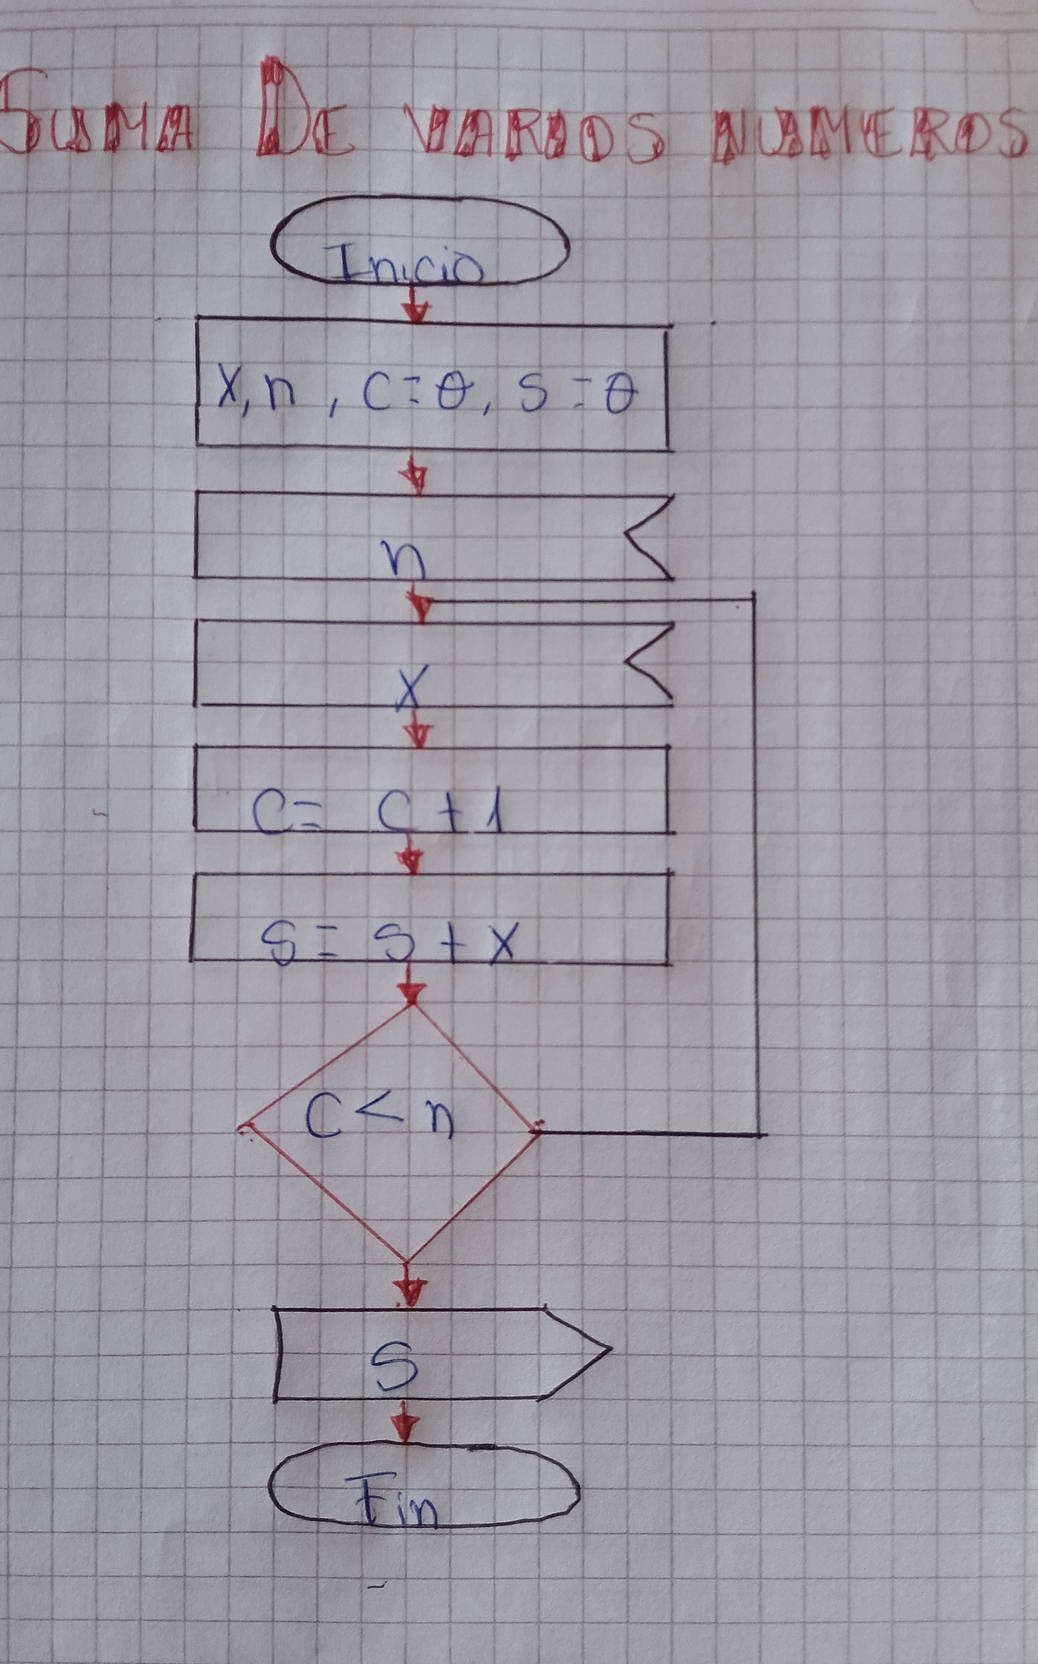 SUMA DE VARIOS NUMEROS
Inicio
X, n, C=0, S=0
n
X
C= C+1
S= S+X
C<n
S
Fin